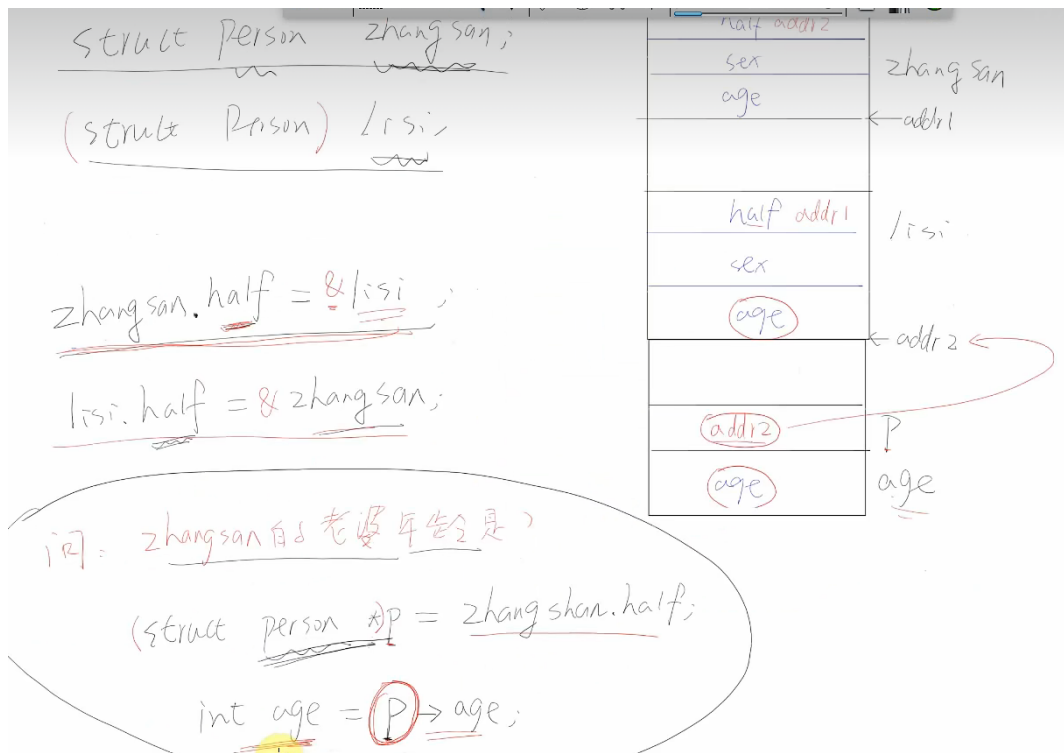 struct person zhangsan;
(struct Person) lisi,
zhangsan.half = &lisi ;
lisi.half = &zhangsan;
问: zhangsan的老婆年龄是?
(struct person *)p = zhangshan.half;
int age = p→age;
half addr2
sex
age
zhangsan
←addr1
half addr1
sex
age
lisi
←addr2
addr2
p
age
age